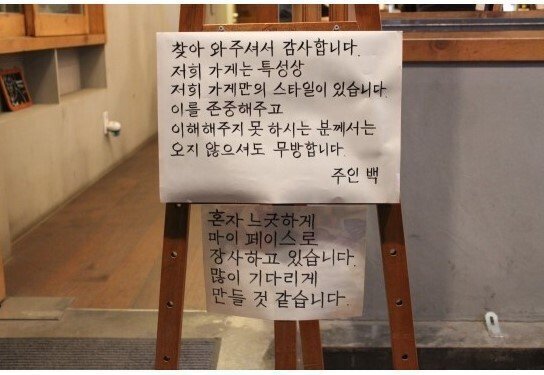 찾아 와주셔서 감사합니다.
저희 가게는 특성상
저희 가게만의 스타일이 있습니다.
이를 존중해주고
이해해주지 못 하시는 분께서는
오지 않으셔도 무방합니다.
주인 백
혼자 느긋하게
마이 페이스로
장사하고 있습니다.
많이 기다리게
만들 것 같습니다.